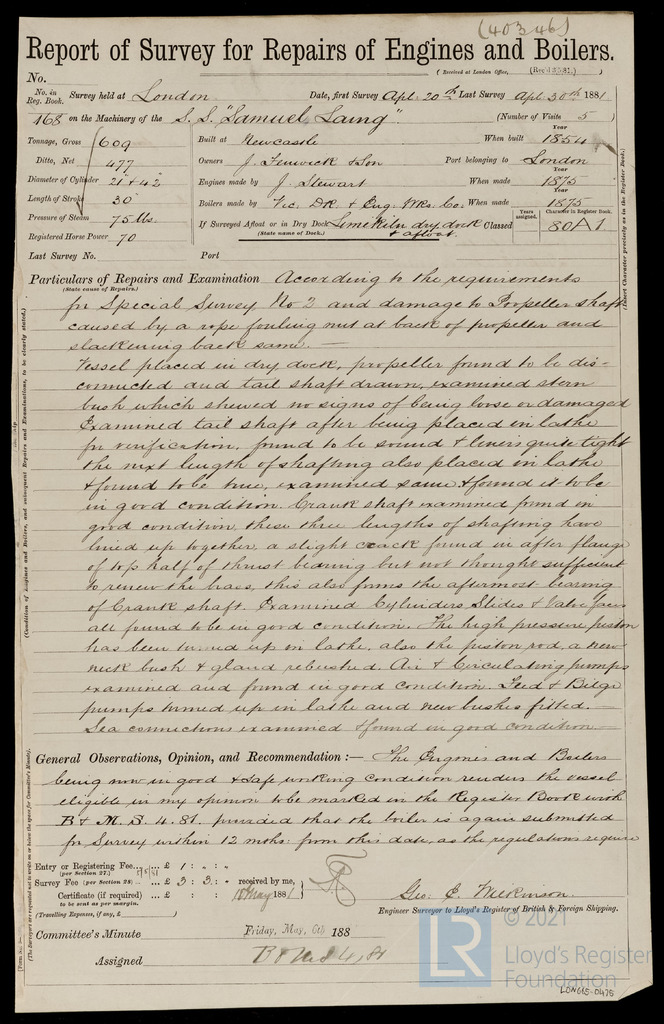 (40346)
Report of Survey for Repairs of Engines and Boilers.
No. (Received at London Office,
No. in Reg. Book. Survey held at London Date, first Survey Apl. 20th Last Survey Apl. 30th 1881
168 on the Machinery of the S.S. "Samuel Laing". (Number of Visits 5)
Tonnage, Gross 609 Built at Newcastle When built Year 1854
Ditto, Net 477 Owners J. Fenwick & Son Port belonging to London
Diameter of Cylinder 21 + 42 Engines made by J. Stewart When made Year 1875
Length of Stroke 30 Boilers made by Vic. Dk. & Eng. Wks. Co. When made Year 1875
Pressure of Steam 75 lbs. If Surveyed Afloat or in Dry Dock Limekiln dry dock & afloat. Classed Years assigned. Character in Register Book. 80A1
(State name of Dock.)
Registered Horse Power 70
Last Survey No. Port
Particulars of Repairs and Examination According to the requirements
(State cause of Repairs.)
for Special Survey No 2 and damage to Propeller shaft
caused by a rope fouling nut at back of propeller and
slackening back same.—
Vessel placed in dry dock, propeller found to be dis-
connected and tail shaft drawn, examined stern
bush which shewed no signs of being loose or damaged
Examined tail shaft after being placed in lathe
for verification, found to be sound & liners quite tight
the next length of shafting also placed in lathe
& found to be true, examined same & found it to be
in good condition. Crank shaft examined found in
good condition, these three lengths of shafting have
lined up together, a slight crack found in after flange
of top half of thrust bearing but not thought sufficient
to renew the brass, this also forms the aftermost bearing
of Crank shaft. Examined Cylinders, Slides & Valve faces
all found to be in good condition. The high pressure piston
has been turned up in lathe, also the piston rod, a new
neck bush & gland rebushed. Air & Circulating pumps
examined and found in good condition. Feed & Bilge
pumps turned up in lathe and new bushes fitted.—
Sea connections examined & found in good condition.—
General Observations, Opinion, and Recommendation :— The Engines and Boilers
being now in good & safe working condition renders the vessel
eligible in my opinion to be marked in the Register Book with
B & M. S. 4. 81. provided that the boiler is again submitted
for Survey within 12 mths: from this date, as the regulations require
Entry or Registering Fee... £ 1 : . : .
(per Section 27.)
Survey Fee (per Section 28)... £ 3 : 3 : . received by me,
Certificate (if required) ... £ : : 18 May 1881
to be sent as per margin.
(Travelling Expenses, if any, £ )
Geo: E. Wilkinson.
Engineer Surveyor to Lloyd's Register of British & Foreign Shipping.
Committee's Minute Friday, May, 6th 188
Assigned
(Insert Character precisely as in the Register Book.)
LR © 2021
Lloyd's Register
Foundation
LON615-0475